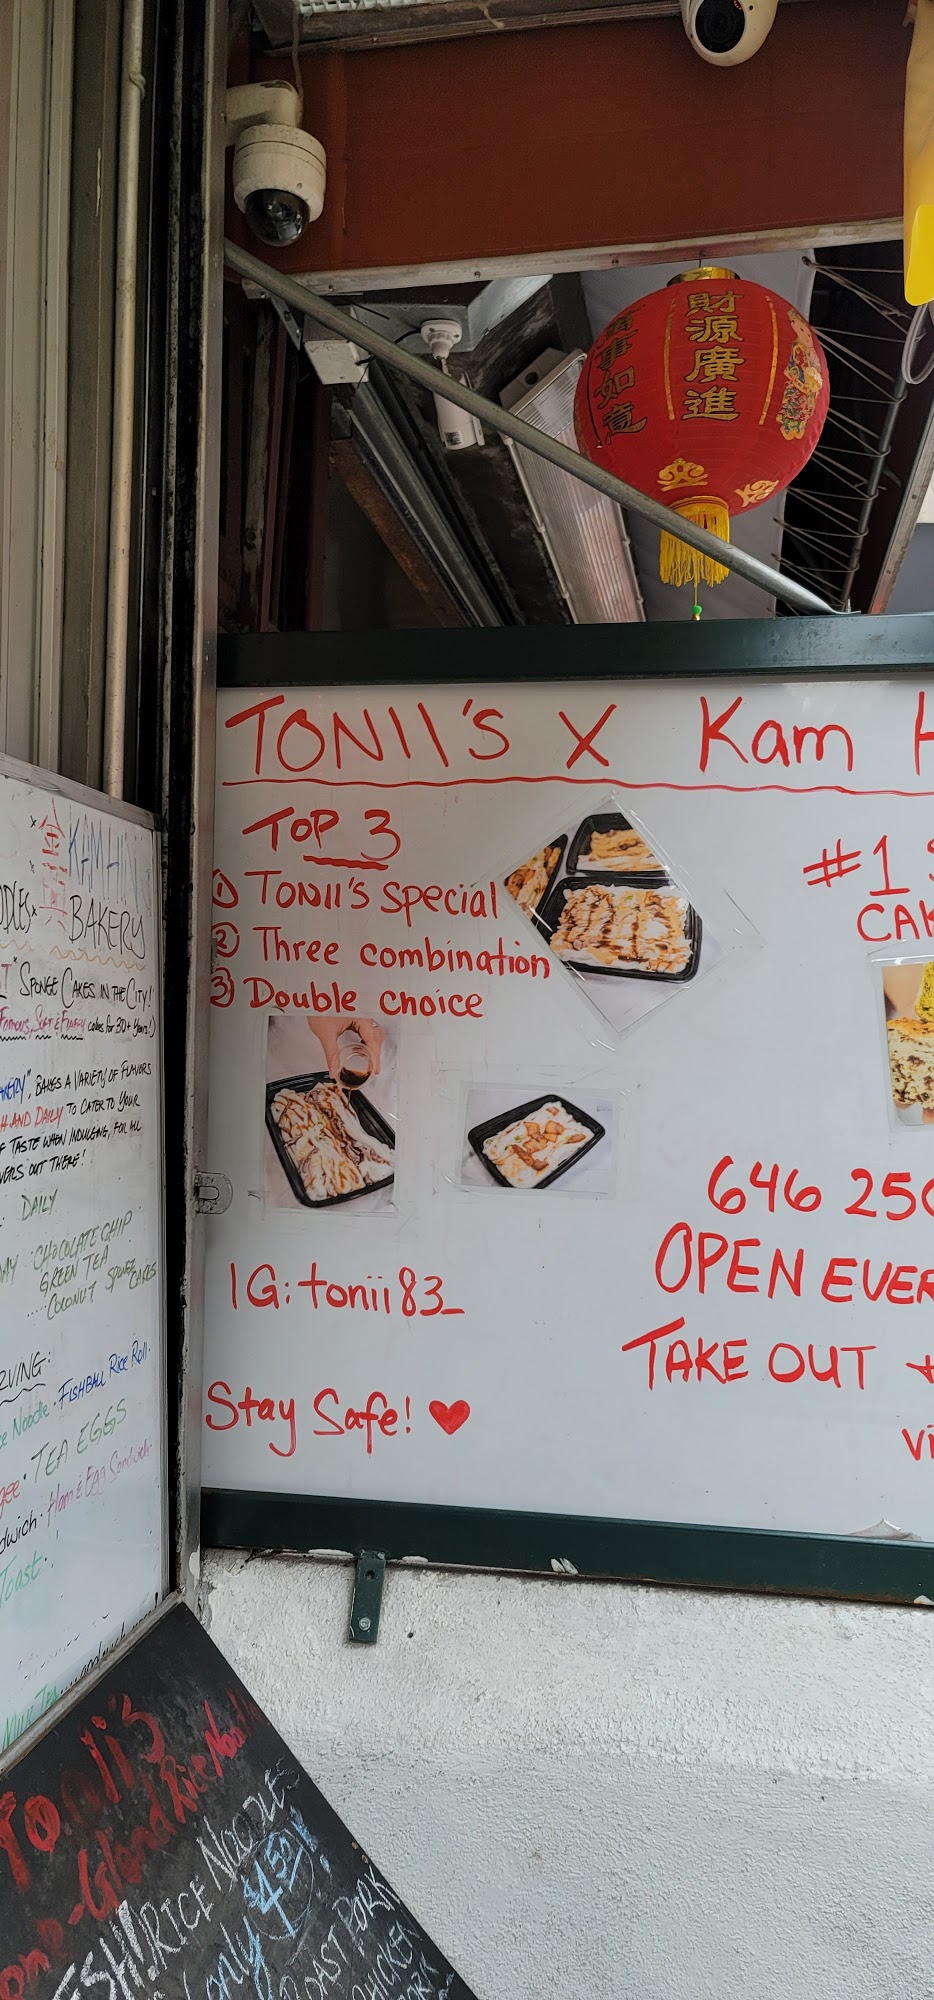 財源廣進
事如意
TONII'S X Kam H
TOP 3
① TONII'S Special
② Three combination
③ Double choice
#1 S
CAK
646 250
OPEN EVER
TAKE OUT +
Vi
IG: tonii83_
Stay Safe! ♥
KAM HIN
BAKERY
SPONGE CAKES IN THE CITY!
Famous, Soft & Fluffy cakes for 30+ years!)
BAKES A VARIETY OF FLAVORS
AND DAILY TO CATER TO YOUR
OF TASTE WHEN INDULGING, FOR ALL
OUT THERE!
DAILY
CHOCOLATE CHIP
GREEN TEA
.... COCONUT SPONGE CAKES
Noodle · FISHBALL Rice Roll.
· TEA EGGS
· Ham & Egg Sandwich
Toast.
Tonii's
Rice Nood
ESH! RICE NOODLES
only $4.50!
ROAST PORK
CHICKEN